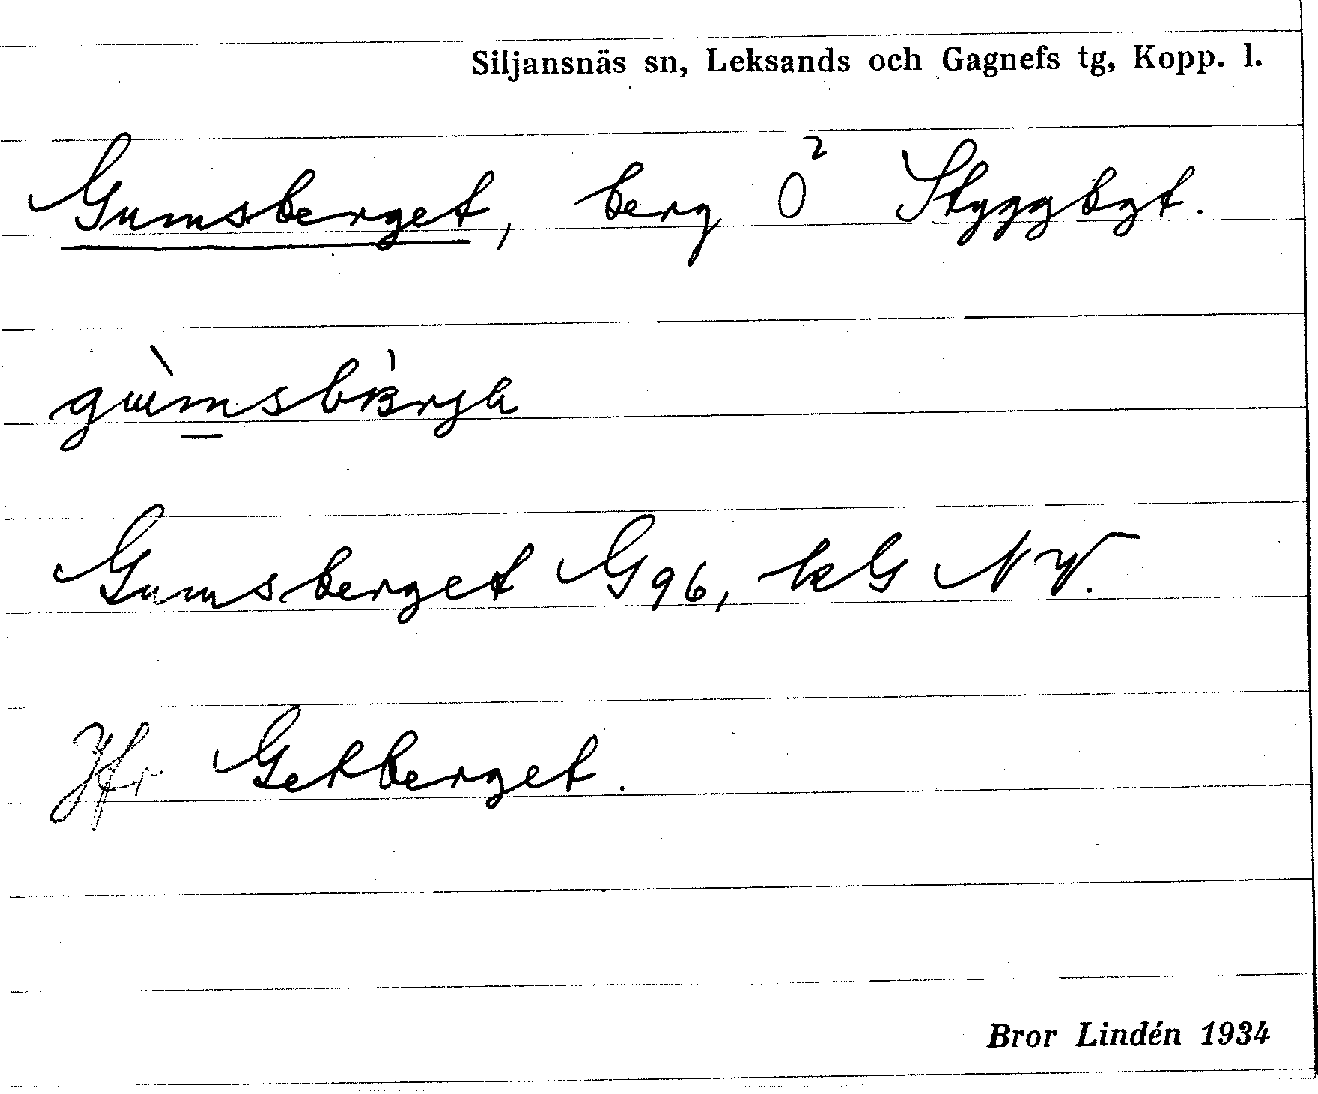 Siljansnäs sn, Leksands och Gagnefs tg, Kopp. l.
Gumsberget, berg Ö² Styggbgt.
Gumsberget G96, kG NV.
Jfr Getberget.
Bror Lindén 1934